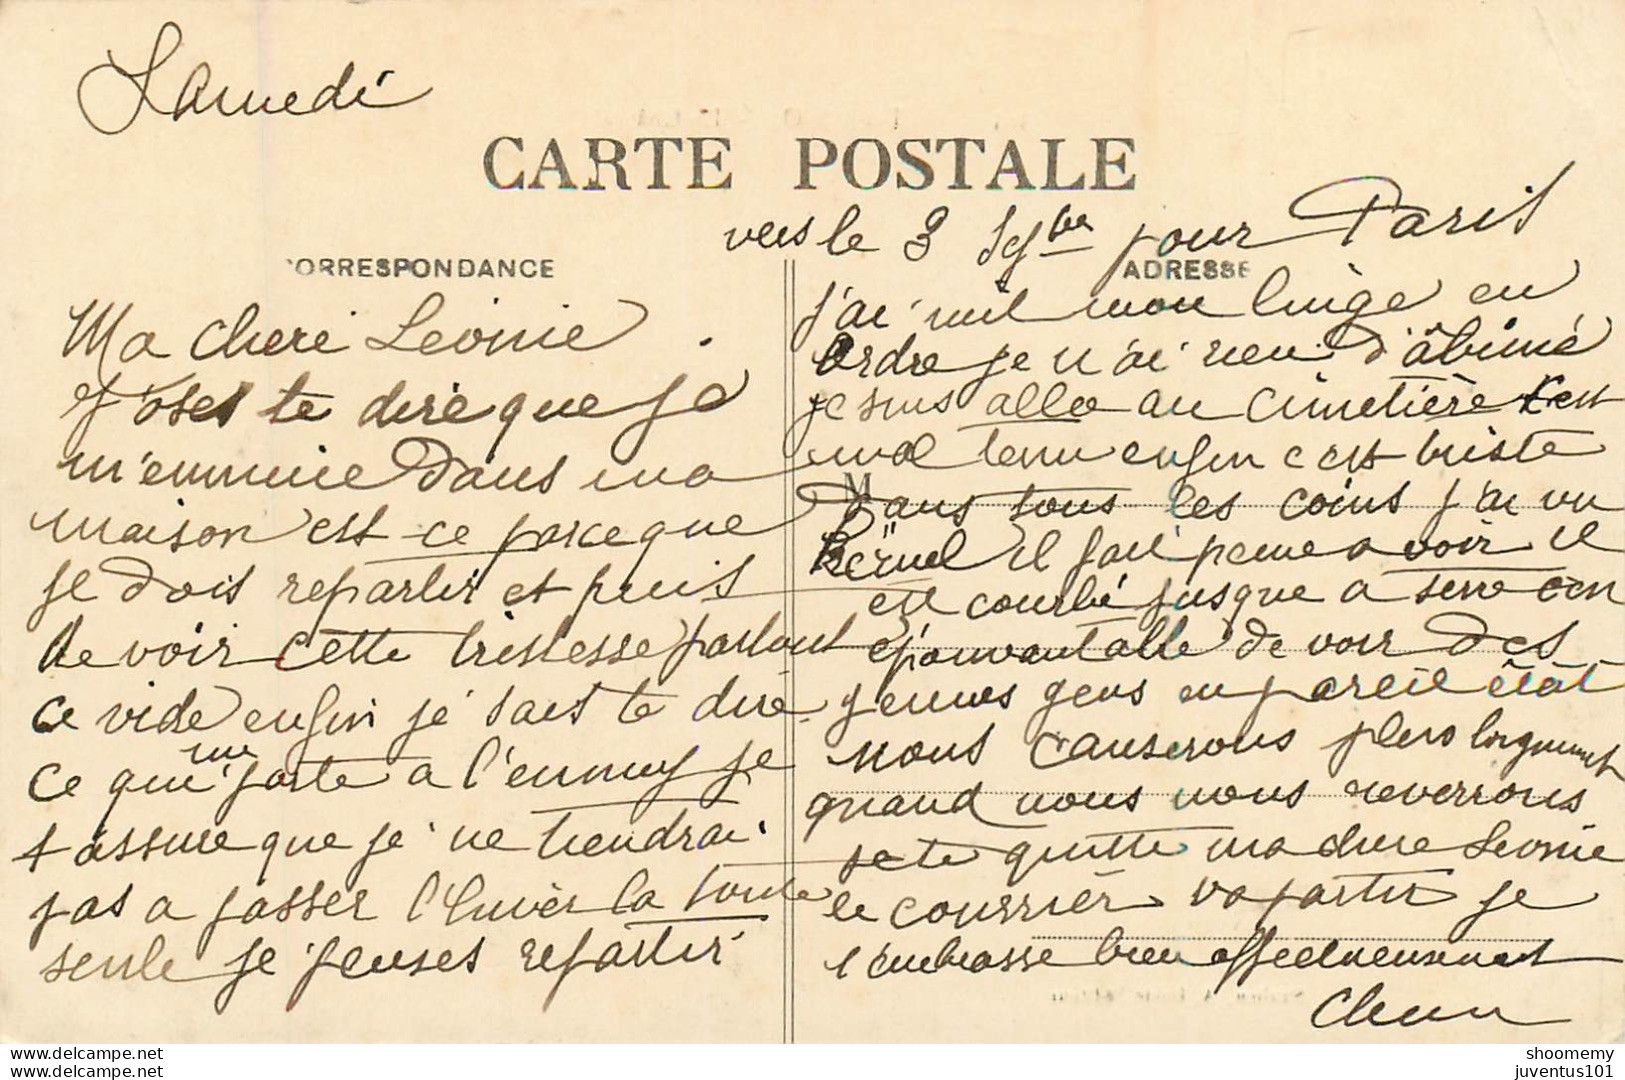 Samedi
CARTE POSTALE
CORRESPONDANCE
Ma cheré Leonie
J'oses te dire que je
m'ennuie dans ma
maison est ce parce que
je dois repartir et puis
de voir cette tristesse partout
ce vide enfin je sais te dire
ce qui me porte a l'ennuy je
t'assure que je ne tiendrai
pas a passer l'hiver la toute
seule je penses repartir
vers le 3 7bre pour Paris
ADRESSE
j'ai mit mon linge en
ordre je n'ai rien d'âbimé
je suis allee au cimetière c'est
mal tenu enfin c'est triste
M
dans tous les coins j'ai vu
il fait peine a voir il
est courbé jusque a terre c'en
épouvantable de voir des
jeunes gens en pareil êtât
nous causerons plus longuement
quand nous nous reverrons
je te quitte ma chere Leonie
le courrièr va partir je
t'embrasse bien affectueusement
shoomemy
juventus101